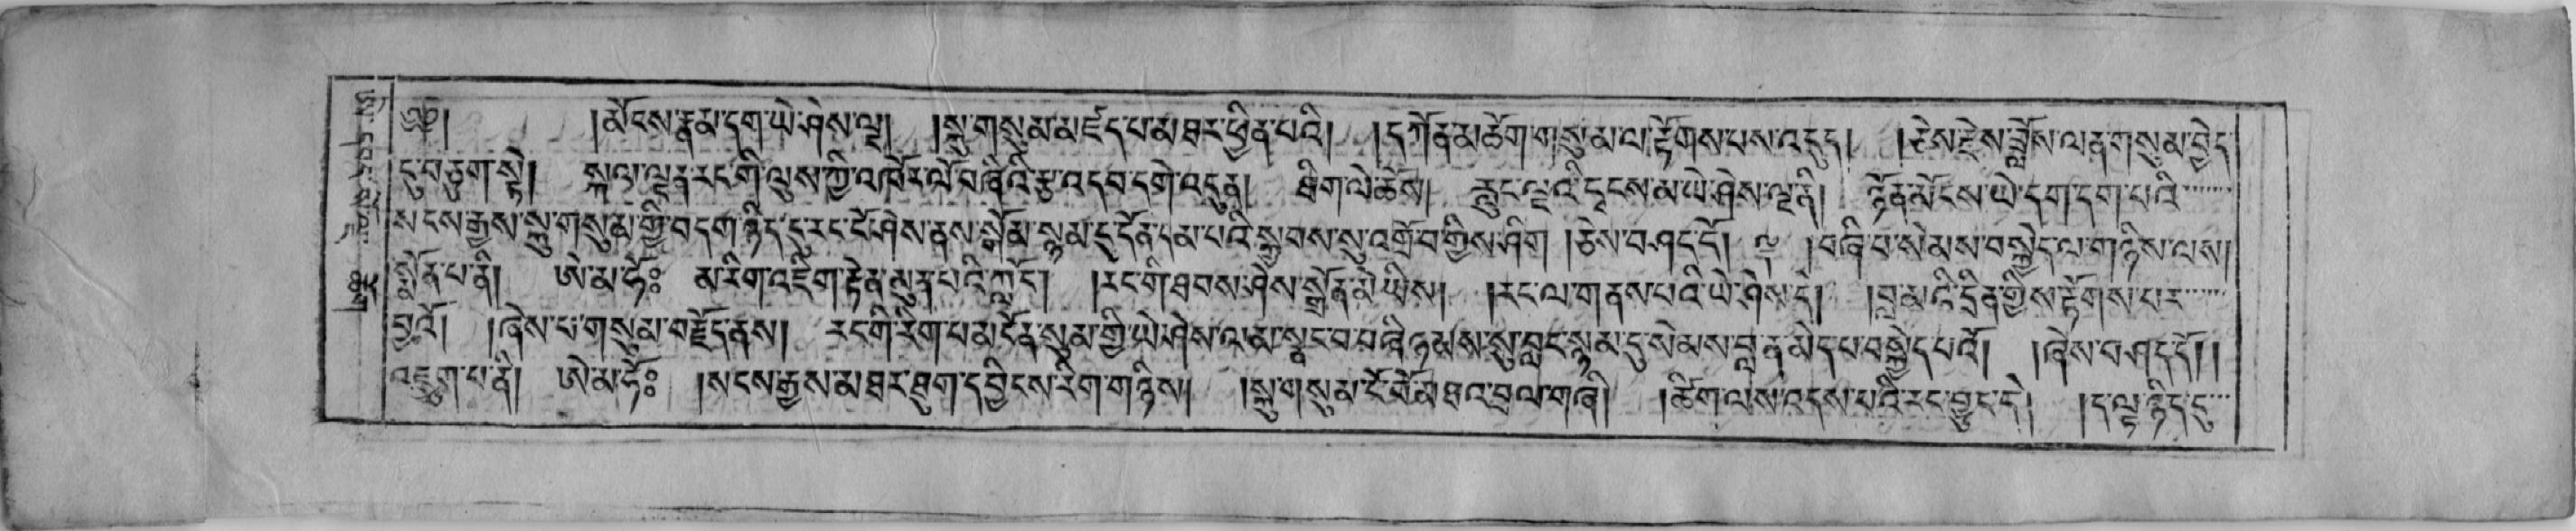 ༄༅། །མོངས་རྣམ་དག་ཡེ་ཤེས་ལྔ། །སྐུ་གསུམ་མ་ཛད་པ་མ་ཐར་ཕྱིན་པའི། །དཀོན་མཆོག་གསུམ་ལ་རྟོགས་པས་འདུད། །ཅེས་རྗེས་བློས་ལན་གསུམ་བྱེད་
དུ་བཅུག་སྟེ། སྐལ་ལྡན་རང་གི་ལུས་ཀྱི་འཁོར་ལོ་བཞིའི་རྩ་འདབ་དགེ་འདུན། ཐིག་ལེ་ཆོས། རླུང་ལྔའི་དྭངས་མ་ཡེ་ཤེས་ལྔ་ནི། ཉོན་མོངས་ཡེ་དག་དག་པའི་
སངས་རྒྱས་སྐུ་གསུམ་གྱི་བདག་ཉིད་དུ་རང་ངོ་ཤེས་ནས་སྒོམ་སྙམ་དུ་དོན་དམ་པའི་སྐྱབས་སུ་འགྲོ་བ་གྱིས་ཤིག །ཅེས་བཤད་དོ། །བཞི་པ་སེམས་བསྐྱེད་ལ་གཉིས་ལས།
སྨོན་པ་ནི། ཨེ་མ་ཧོཿ མ་རིག་འཇིག་རྟེན་མུན་པའི་ཀློང༌། །རང་གི་ཐབས་ཤེས་སྒྲོན་མེ་ཡིས། །རང་ལ་གནས་པའི་ཡེ་ཤེས་དེ། །བླ་མའི་དྲིན་གྱིས་རྟོགས་པར་
བྱའོ། །ཞེས་པ་གསུམ་བརྗོད་ནས། རང་གི་རིག་པ་མངོན་སུམ་གྱི་ཡེ་ཤེས་ལ་མ་སྣང་བ་བཞི་ཉམས་སུ་བླང་སྙམ་དུ་སེམས་བླ་ན་མེད་པ་བསྐྱེད་པའོ། །ཞེས་བཤད་དོ།།
འཇུག་པ་ནི། ཨེ་མ་ཧོཿ །སངས་རྒྱས་མ་ཐར་ཐུག་དབྱིངས་རིག་གཉིས། །སྐུ་གསུམ་ངོ་བོ་མཐའ་བྲལ་གཞི། །ཚིག་ལས་འདས་པའི་རང་བྱུང་དེ། །ད་ལྟ་ཉིད་དུ་